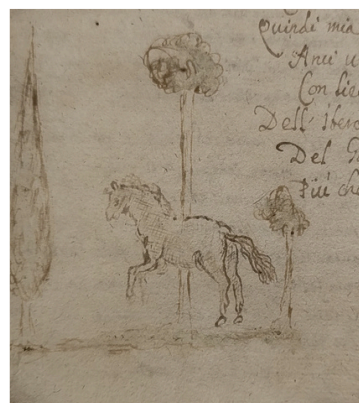 Quindi mia
Anzi u
Con lie
Dell' Iber
Del G
Più che